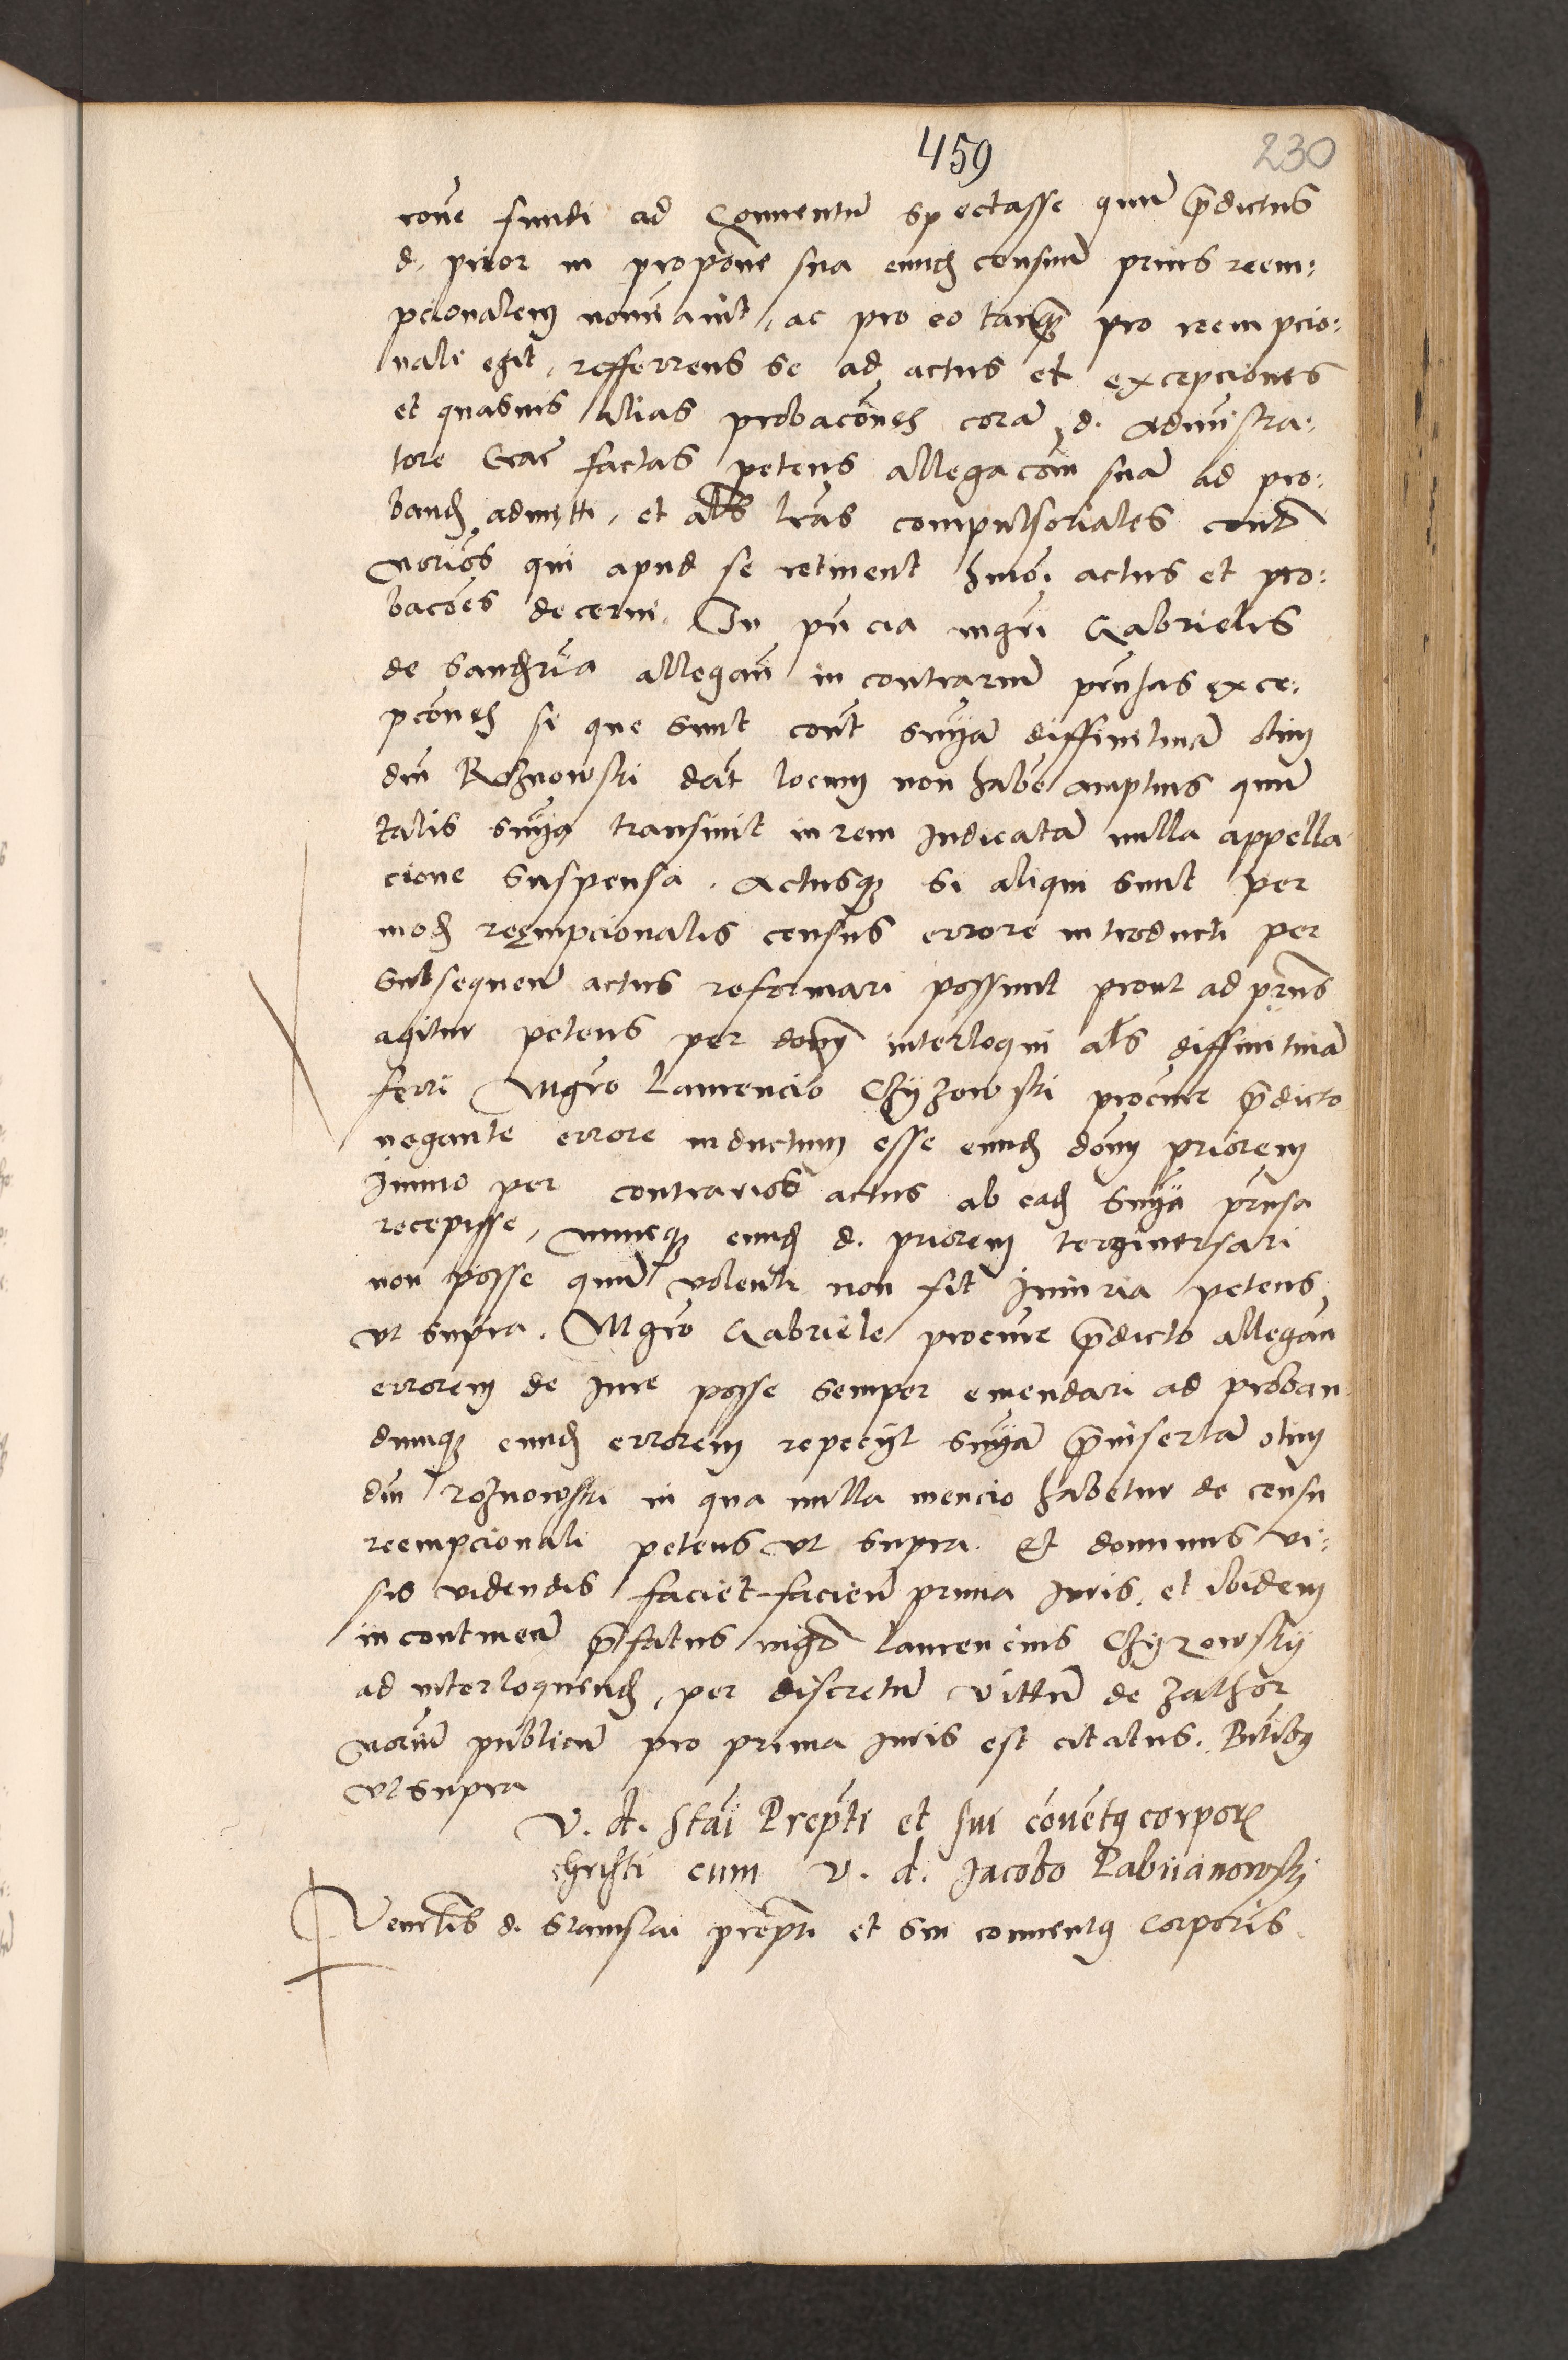 459 230
rone fundi ad Conventum spectasse quum p̄dictus
d. prior in propone sua eundem censum prius reem:
pcionalem nominavit, ac pro eo tanq̨ pro reempcio:
nali egit, refferrens se ad actus et excepciones
et quasvis alias probacones corā d. Administra:
tore Crac̄ factas petens allegacom̄ suā ad pro:
band admitti, et als̄ lrās compulsoriales cont̄
notios qui apud se retinent hmōi actus et pro:
bacoēs decerni. In pn̄cia mgrī Gabrielis
de allegan̄ in contrarium pn̄sas exce:
pcōnes si que sunt cont̄ snyā diffinitivā olim
dni Rosznowski dat̄ locum non habe amplius quum
talis snya transivit in rem Judicatā nulla appella
cione suspensa. Actusq̨ si aliqui sunt per
mod reempcionalis census errore introducti per
subsequen̄ actus reformari possunt prout ad prn̄s
agitur petens per dom̄ interloqui als̄ diffinitivā
ferri Mgrō Laurencio Chyzowski procure p̄dicto
negante errore inductum esse eund dom̄ priorem
Immo per contrarios actus ab ead snya prn̄sa
recepisse, nuncq̨ eund d. priorem tergiversari
non posse quum volenti non fit Iniuria petens
ut supra. Mgrō Gabriele procure p̄dicto allegan̄
errorem de Jure posse semper emendari ad proban
dumq̨ eund errorem repecyt snyā p̄insertā olim
dni rosznowski in qua nulla mencio habetur de censu
reempcionali petens ut supra. Et dominus vi:
sis videndis faciet facien̄ prima Juris. et ibidem
in continen̄ p̄fatus mgr̄ Laurencius Chyzowsky
ad interloquend, per discretum vittum de Zathor
notm̄ publicum pro prima Juris est citatus. Pn̄tibus
ut supra
V. d. Stāi Prepti et sui cōvetus corporis
christi cum V. d. Jacobo Pabiianowsky
Venerlis d. Stanislai prepti et sui conventus Corporis